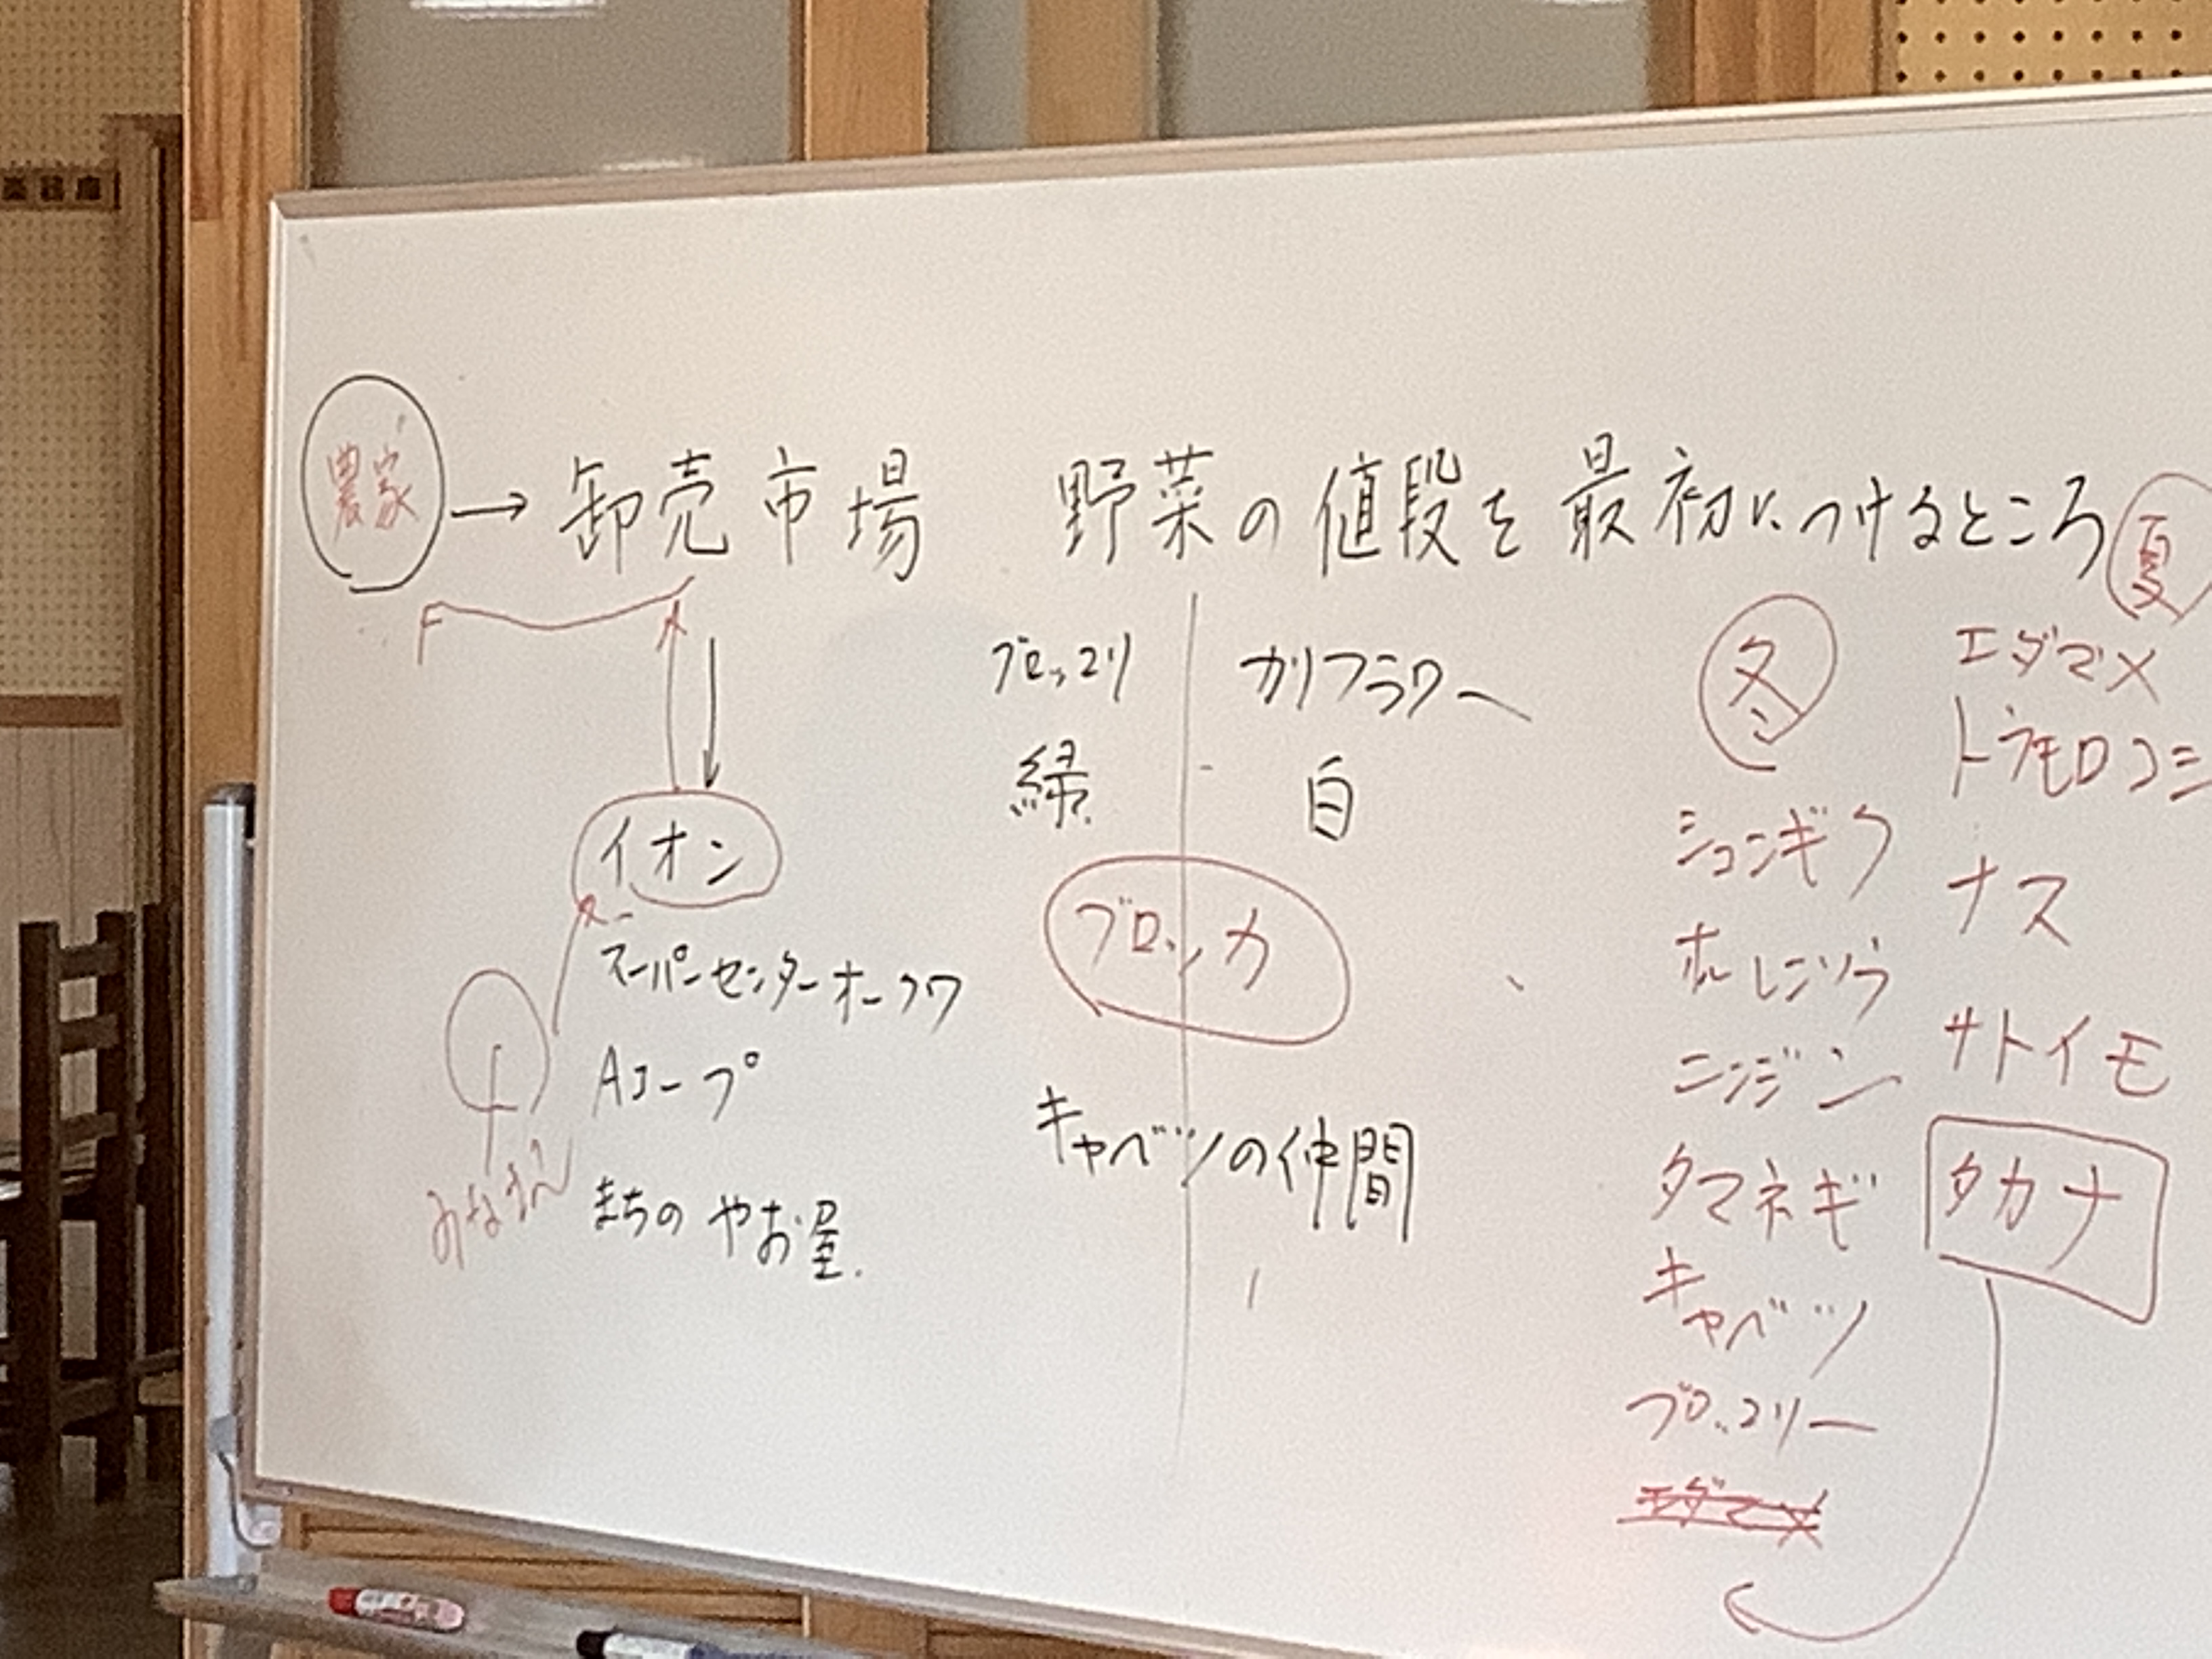 農家 → 卸売市場 野菜の値段を最初につけるところ
ブロッコリ カリフラワー
緑 白
ブロッカ
キャベツの仲間
イオン
スーパーセンターオークワ
Aコープ
まちのやお屋
みなさん
冬
シュンギク
ホーレンソウ
ニンジン
タマネギ
キャベツ
ブロッコリー
エダマメ
夏
エダマメ
トウモロコシ
ナス
サトイモ
タカナ